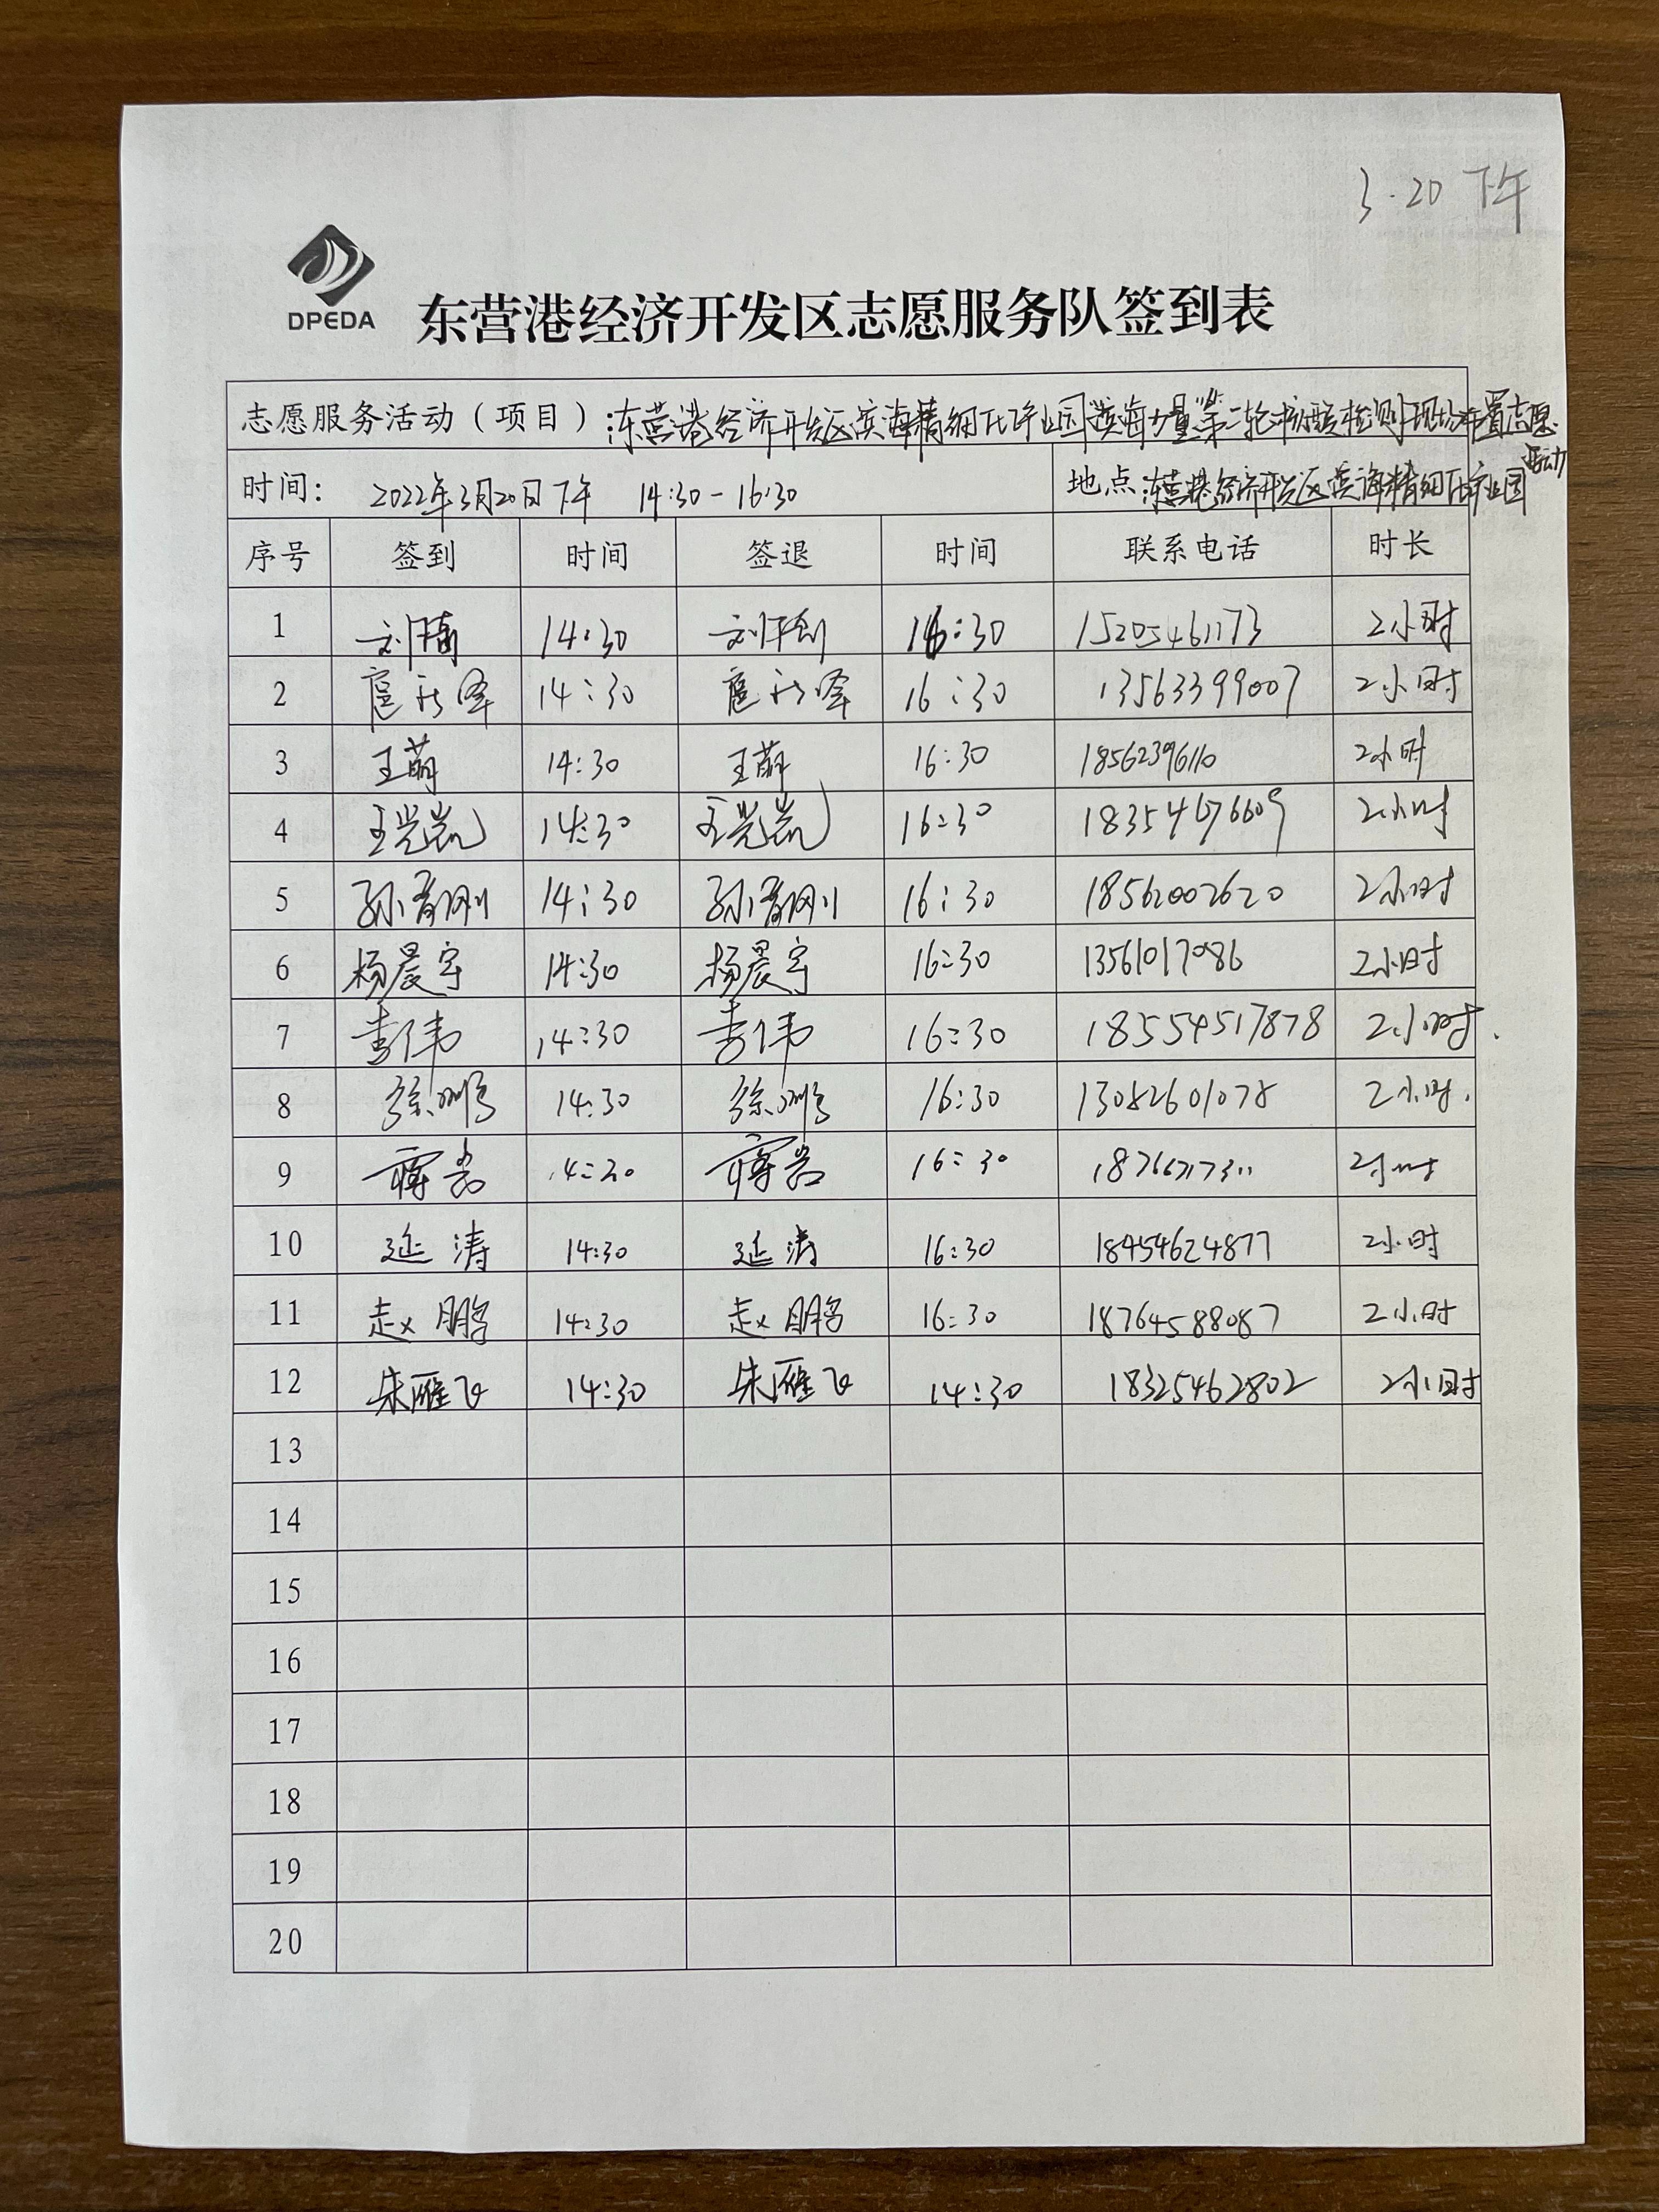 3.20 下午
DPEDA
东营港经济开发区志愿服务队签到表
志愿服务活动（项目）：东营港经济开发区滨海精细化工产业园"滨海力量"第二轮核酸检测现场布置志愿
活动
时间： 2022年3月20日下午 14:30-16:30 地点：东营港经济开发区滨海精细化工产业园
序号 签到 时间 签退 时间 联系电话 时长
1 14:30 16:30 15205461173 2小时
2 14:30 16:30 13563399007 2小时
3 王萌 14:30 王萌 16:30 18562396110 2小时
4 王光凯 14:30 王光凯 16:30 18354676609 2小时
5 14:30 16:30 18562002620 2小时
6 杨晨宇 14:30 杨晨宇 16:30 13561017086 2小时
7 李伟 14:30 李伟 16:30 18554517878 2小时.
8 徐鹏 14:30 徐鹏 16:30 13082601078 2小时.
9 14:30 16:30 2小时
10 延涛 14:30 延涛 16:30 18454624877 2小时
11 赵鹏 14:30 赵鹏 16:30 18764588087 2小时
12 朱雁飞 14:30 朱雁飞 14:30 18325462802 2小时
13
14
15
16
17
18
19
20